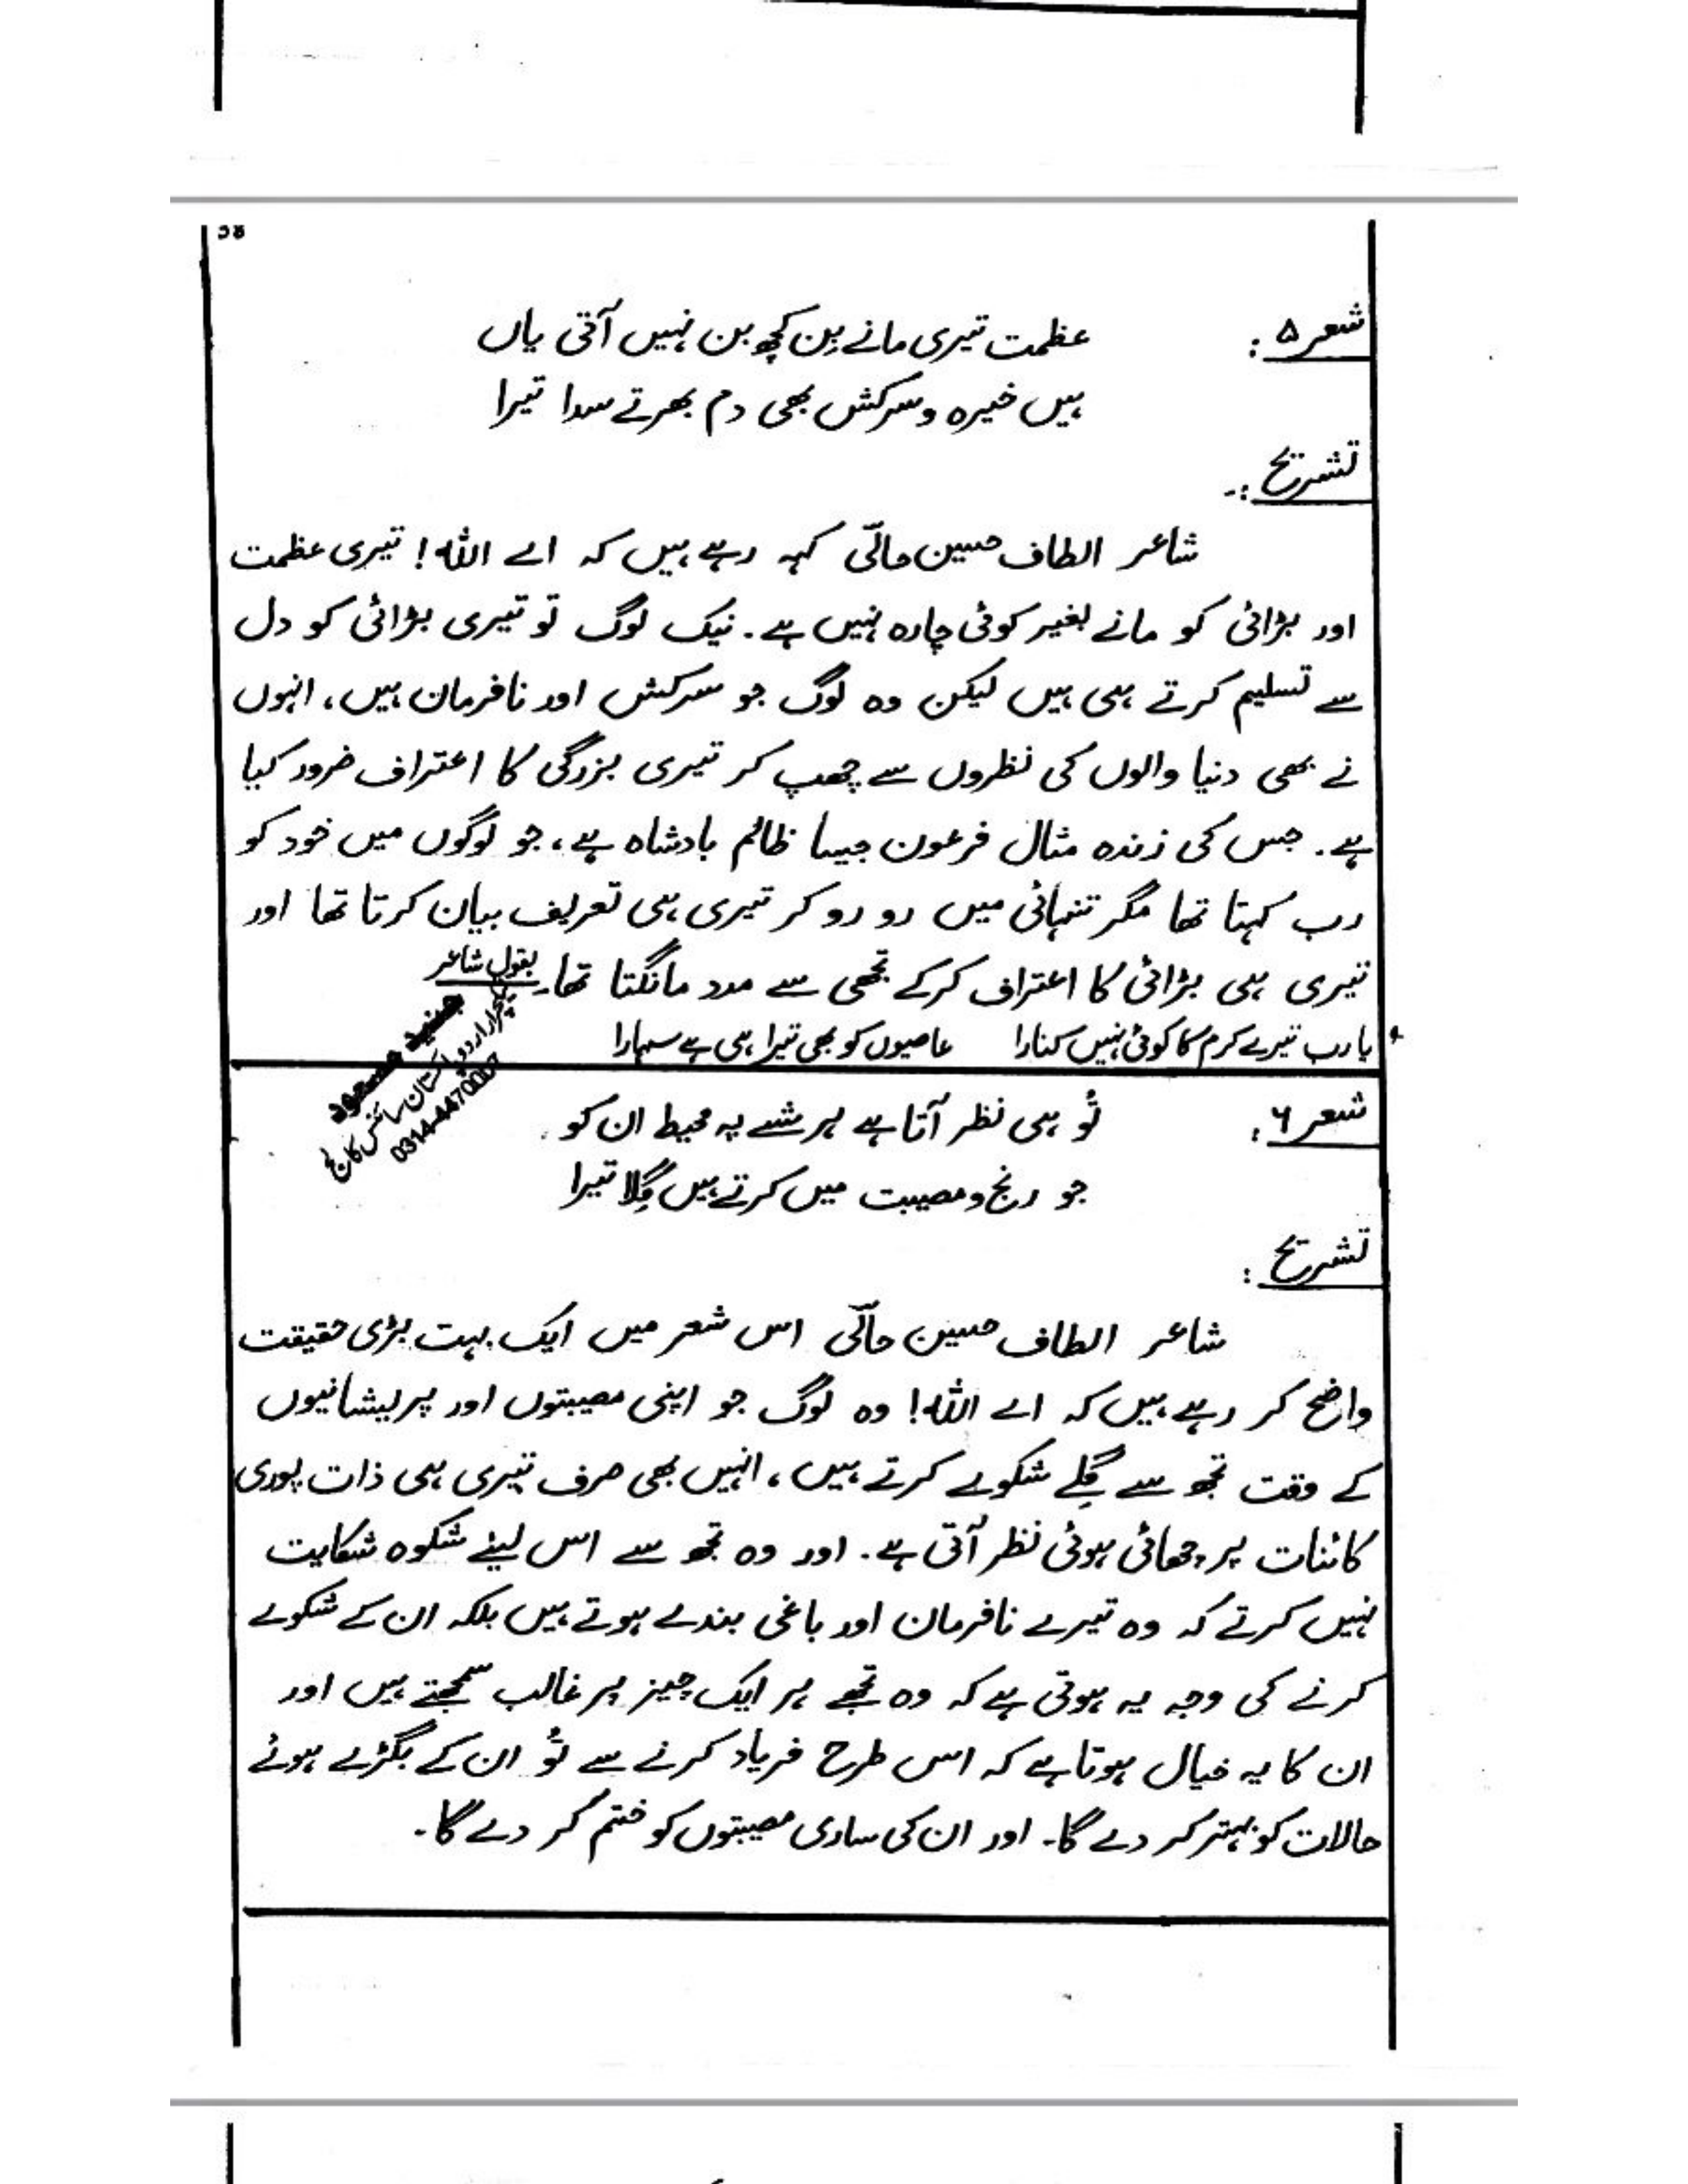 38
شعر ۵: عظمت تیری مانے بِن کچھ بن نہیں آتی یاں
ہیں خیرہ و سرکش بھی دم بھرتے سدا تیرا
تشریح :-
شاعر الطاف حسین حالؔی کہہ رہے ہیں کہ اے اللہ! تیری عظمت
اور بڑائی کو مانے بغیر کوئی چارہ نہیں ہے۔ نیک لوگ تو تیری بڑائی کو دل
سے تسلیم کرتے ہی ہیں لیکن وہ لوگ جو سرکش اور نافرمان ہیں، انہوں
نے بھی دنیا والوں کی نظروں سے چھپ کر تیری بزرگی کا اعتراف ضرور کیا
ہے۔ جس کی زندہ مثال فرعون جیسا ظالم بادشاہ ہے، جو لوگوں میں خود کو
رب کہتا تھا مگر تنہائی میں رو رو کر تیری ہی تعریف بیان کرتا تھا اور
تیری ہی بڑائی کا اعتراف کرکے تجھی سے مدد مانگتا تھا۔ بقول شاعر
یا رب تیرے کرم کا کوئی نہیں کنارا عاصیوں کو بھی تیرا ہی ہے سہارا
جنید مسعود
لیکچرار اردو پاکستان سائنس کالج
شعر ۶: تُو ہی نظر آتا ہے ہر شے پہ محیط ان کو
جو رنج و مصیبت میں کرتے ہیں گِلا تیرا
تشریح :
شاعر الطاف حسین حالؔی اس شعر میں ایک بہت بڑی حقیقت
واضح کر رہے ہیں کہ اے اللہ! وہ لوگ جو اپنی مصیبتوں اور پریشانیوں
کے وقت تجھ سے گِلے شکوے کرتے ہیں، انہیں بھی صرف تیری ہی ذات پوری
کائنات پر چھائی ہوئی نظر آتی ہے۔ اور وہ تجھ سے اس لیئے شکوہ شکایت
نہیں کرتے کہ وہ تیرے نافرمان اور باغی بندے ہوتے ہیں بلکہ ان کے شکوے
کرنے کی وجہ یہ ہوتی ہے کہ وہ تجھے ہر ایک چیز پر غالب سمجھتے ہیں اور
ان کا یہ خیال ہوتا ہے کہ اس طرح فریاد کرنے سے تُو ان کے بگڑے ہوئے
حالات کو بہتر کر دے گا۔ اور ان کی ساری مصیبتوں کو ختم کر دے گا۔